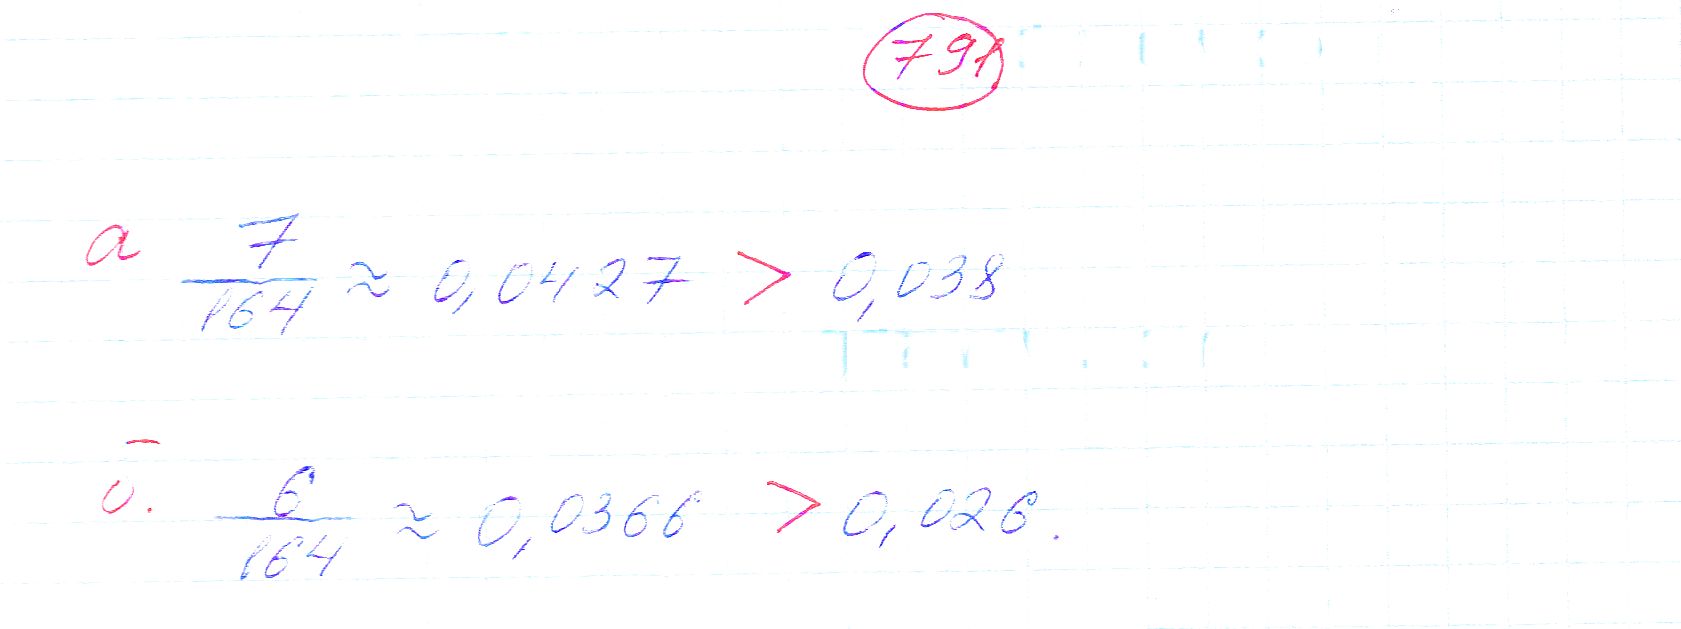 791
а 7/164 ≈ 0,0427 > 0,038
б. 6/164 ≈ 0,0366 > 0,026.